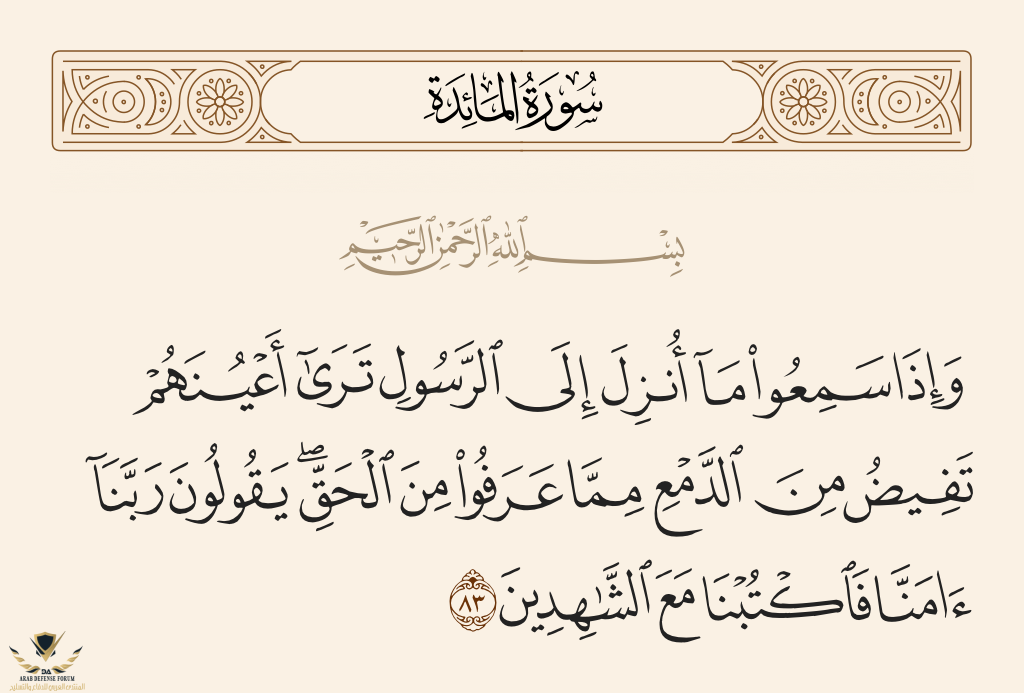 سُورَةُ المَائِدَةِ
بِسْمِ ٱللَّهِ ٱلرَّحْمَٰنِ ٱلرَّحِيمِ
وَإِذَا سَمِعُوا۟ مَآ أُنزِلَ إِلَى ٱلرَّسُولِ تَرَىٰٓ أَعْيُنَهُمْ
تَفِيضُ مِنَ ٱلدَّمْعِ مِمَّا عَرَفُوا۟ مِنَ ٱلْحَقِّ ۖ يَقُولُونَ رَبَّنَآ
ءَامَنَّا فَٱكْتُبْنَا مَعَ ٱلشَّٰهِدِينَ ٨٣
DA
ARAB DEFENSE FORUM
المنتدى العربي للدفاع والتسليح